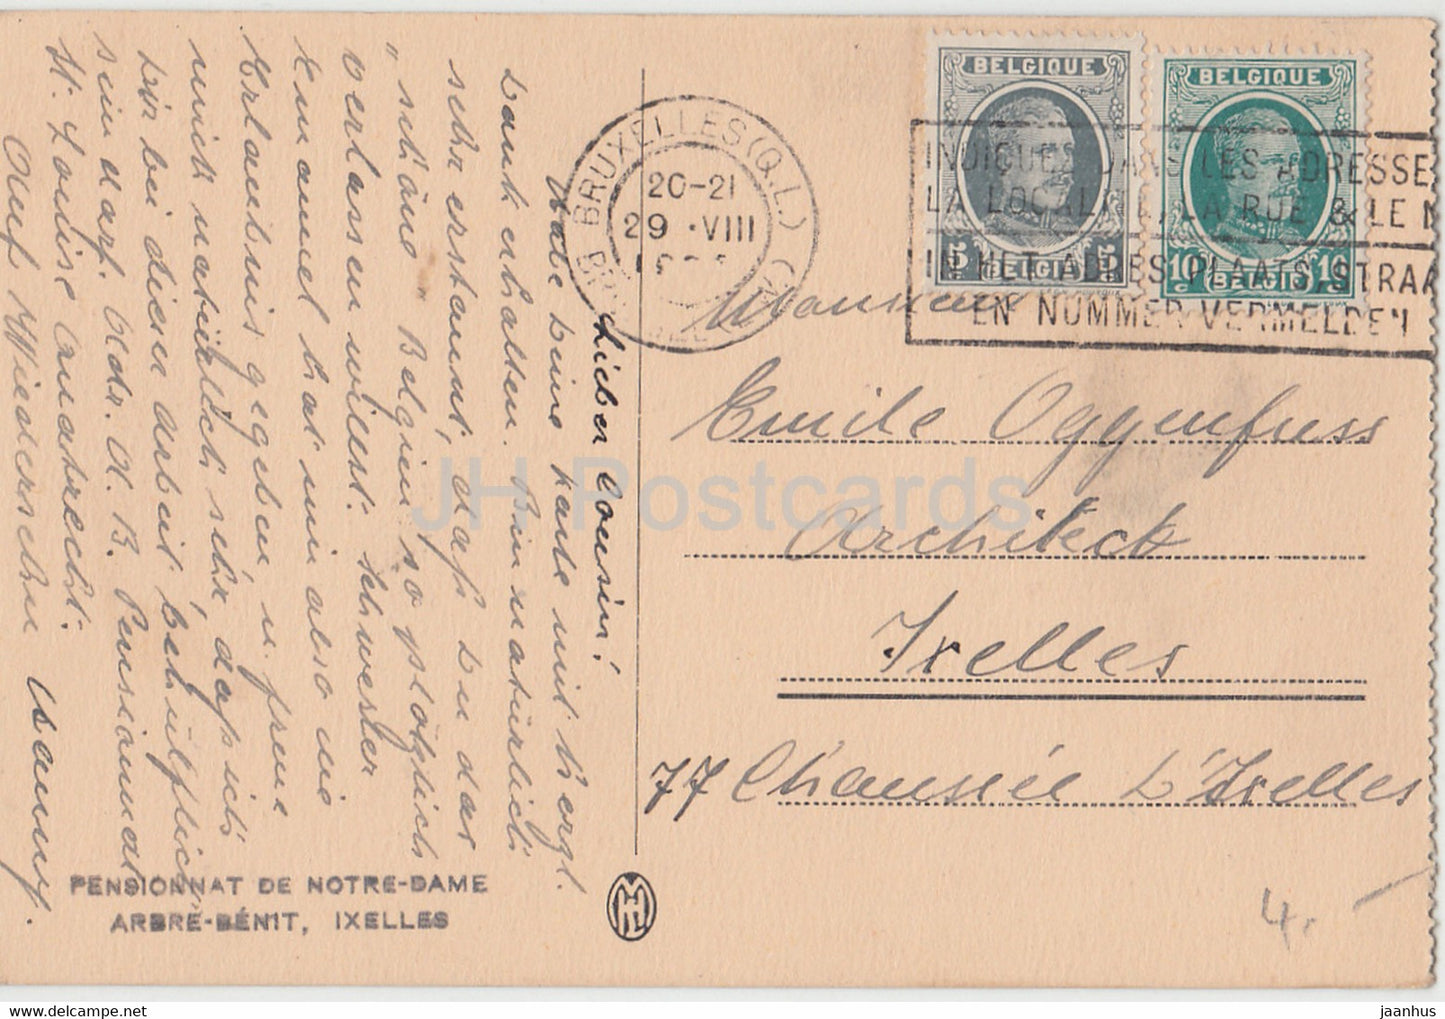 Lieber Cousin!
Habe deine Karte mit herzl.
Dank erhalten. Bin natürlich
sehr erstaunt, dass du das
„schöne Belgien" so plötzlich
verlassen willst. Schwester
Emanuel hat mir also die
Erlaubnis gegeben u. freue
mich natürlich sehr, dass ich
dir bei dieser Arbeit behülflich
sein darf. Adr. A. B. Pensionnat
St. Louise Anabrecht.
Auf Wiedersehen
PENSIONNAT DE NOTRE-DAME
ARBRE-BÉNIT, IXELLES
BRUXELLES (Q.L.)
20-21
29 VIII
BELGIQUE
5 BELGIË 5
BELGIQUE
10 c BELGIË 10 c
INDIQUEZ DANS LES ADRESSES
LA LOCALITÉ, LA RUE & LE N
IN HET ADRES PLAATS, STRAA
EN NUMMER VERMELDEN
Monsieur
Emile Oggenfuss
Architeck
Ixelles
77 Chaussée d'Ixelles
4.-
JH Postcards
jaanhus